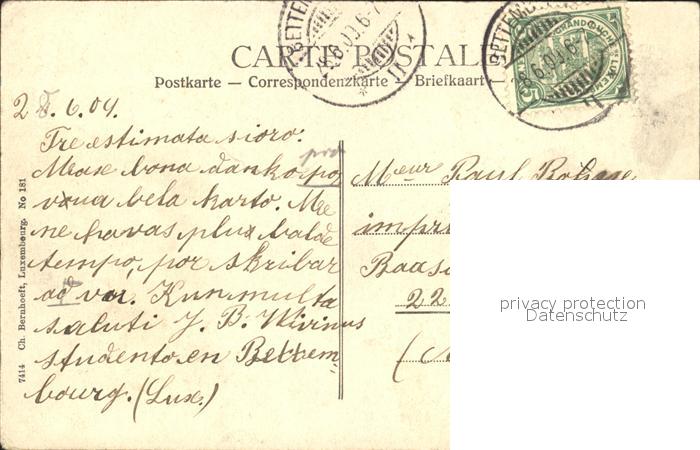 CARTE POSTALE
Postkarte — Correspondenzkarte — Briefkaart
28.6.09.
Tre estimata sioro.
Mase bona danko pro
vua bela karto. Me
ne havas plu balde
tempo, por skribar
ad vu. Kun multa
saluti J. B. Wirinus
studento en Bettem
bourg. (Lux.)
Meur Paul
impri
Baaso
22
(
7414 Ch. Bernhoeft, Luxembourg. No 181
privacy protection
Datenschutz